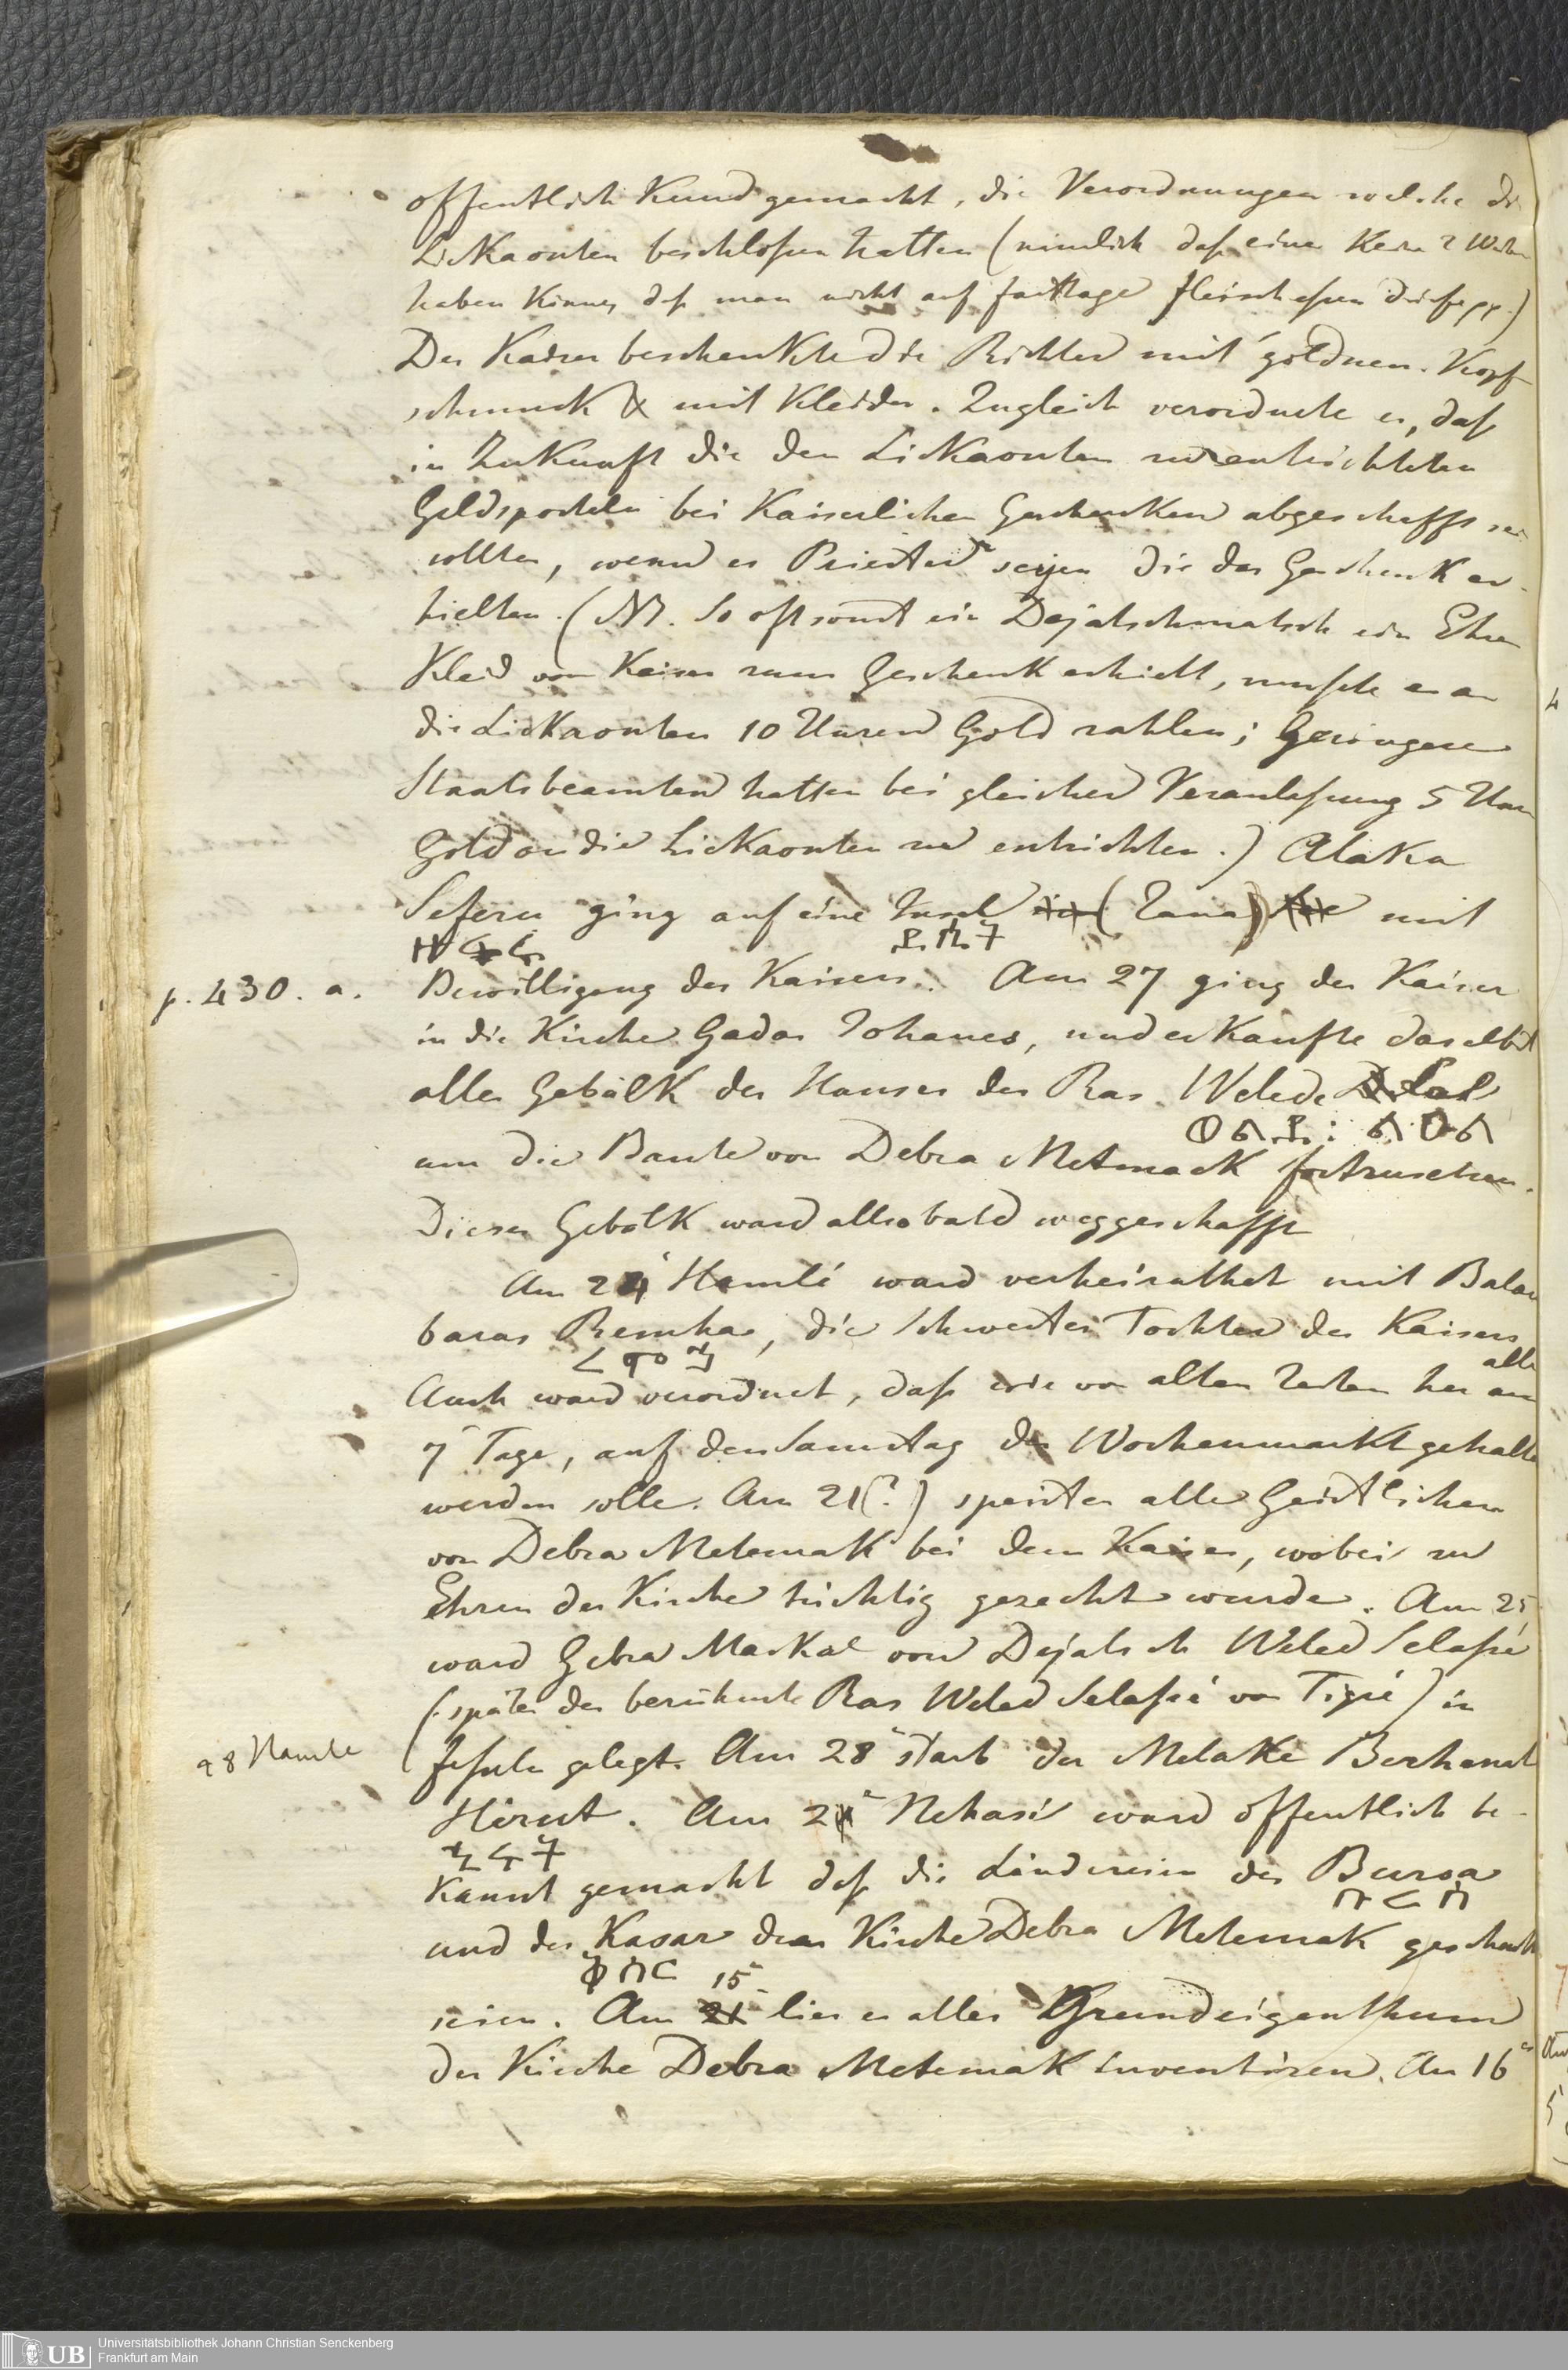 offentlich Kund gemacht, die Verordnungen welche di
LicKaonten beschloßen hatten (nimlich daß einer Keine 2 Weiber
haben Könne, daß man nicht auf fasttage fleisch eßen dürfe pp.)
Der Kaiser beschenKte die Richter mit goldnen Kopf
schmuck & mit Kleider. Zugleich verordnete er, daß
in ZuKunft die den LicKaonten zu entrichteten
Geldsporteln bei Kaiserlichen GeschenKen abgeschafft sein
sollten, wenn es Priester seyen die das GeschenK er-
hielten. (NB. So oft sonst ein Dejatschmatsch ein Ehren
Kleid vom Kaiser zum GeschenK erhielt, mußte er an
die LicKaonten 10 Unzen Gold zahlen; Geringere
Staatsbeamten hatten bei gleicher Veranlaßung 5 Unzen
Gold an die LicKaonten zu entrichten.) AlaKa
Seferu ging auf eine Insel (Tana) mit
Bewilligung des Kaisers. Am 27 ging der Kaiser
p. 430. a.
in die Kirche Gadas Johanes, und erKaufte daselbst
alles GebälK des Hauses des Ras Welede
ወልዴ: ልዑል
um die Baute von Debra MetmacK fortzusetzen.
Dieses GebälK ward allsobald weggeschafft
Am 24 Hamlé ward verheirathet mit Balam
baras Remha, die Schwester Tochter des Kaisers
Auch ward verordnet, daß wie von alten Zeiten her alle
7 Tage, auf den Samstag der Wochenmarkt gehalten
werden solle. Am 21(?) speisten alle Geistlichen
von Debra MetemaK bei dem Kaiser, wobei zu
Ehren der Kirche tüchtig gezecht wurde. Am 25
ward Gebra MasKal von Dejatsch Weled Selaßé
(später der berühmte Ras Weled Selaßé von Tigré) in
feßeln gelegt. Am 28 starb der MelaKe Berhanat
28 Hamle
Hirut. Am 2 Nehasé ward öffentlich be-
ኂሩት
Kannt gemacht daß die Ländereien des Bursa
und des Kasar der Kirche Debra MetemaK geschenkt
ቀሰር 15
seien. Am 21 lies er alles Grundeigenthum
der Kirche Debra MetemaK inventiren. Am 16